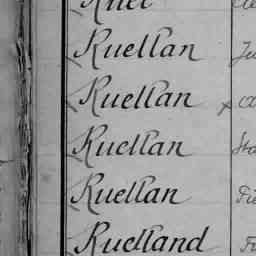 Ruel
Ruellan
Ruellan x
Ruellan
Ruellan
Ruelland